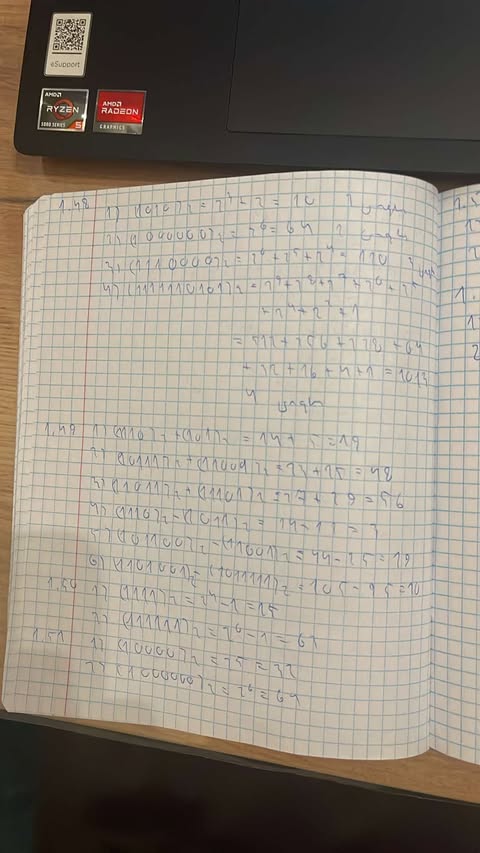 eSupport
AMD
RYZEN
5000 SERIES 5
AMD
RADEON
GRAPHICS
1.48 1) (1010)₂ = 2³ + 2 = 10
2) (1000000)₂ = 2⁶ = 64
3) (1110000)₂ = 2⁶ + 2⁵ + 2⁴ = 112
4) (1111110101)₂ = 2⁹ + 2⁸ + 2⁷ + 2⁶ + 2⁵
+ 2⁴ + 2² + 1
= 512 + 256 + 128 + 64
+ 32 + 16 + 4 + 1 = 1013
4
1.49 1) (1110)₂ + (101)₂ = 14 + 5 = 19
2) (10111)₂ + (11001)₂ = 23 + 25 = 48
3) (11011)₂ + (11101)₂ = 27 + 29 = 56
4) (1110)₂ - (1011)₂ = 14 - 11 = 3
5) (101100)₂ - (11001)₂ = 44 - 25 = 19
6) (1101001)₂ - (1011111)₂ = 105 - 95 = 10
1.50 1) (1111)₂ = 2⁴ - 1 = 15
2) (111111)₂ = 2⁶ - 1 = 63
1.51 1) (100000)₂ = 2⁵ = 32
2) (1000000)₂ = 2⁶ = 64